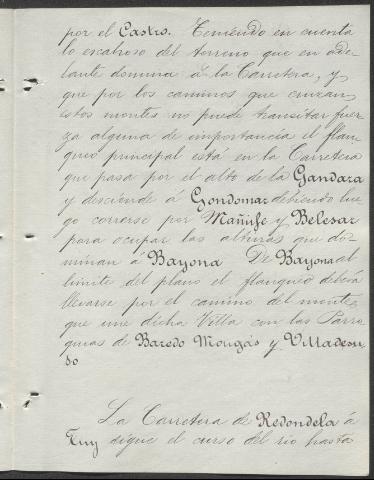 por el Castro. Teniendo en cuenta
lo escabroso del terreno que en ade-
lante domina á la Carretera, y
que por los caminos que cruzan
estos montes no puede transitar fuer-
za alguna de importancia el flan-
queo principal está en la Carretera
que pasa por el alto de la Gandara
y desciende á Gondomar debiendo lue-
go correrse por Mañife y Belesar
para ocupar las alturas que do-
minan á Bayona. De Bayona al
límite del plano el flanqueo deberá
llevarse por el camino del monte,
que une dicha Villa con las Parro-
quias de Baredo Mougás y Villadesu-
so
La Carretera de Redondela á
Tuy sigue el curso del rio hasta